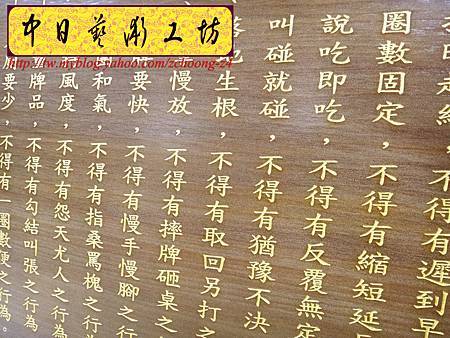 中日藝術工坊
http://tw.myblog.yahoo.com/zchoong-24
不得有遲到早
圈數固定，不得有縮短延
說吃即吃，不得有反覆無定
叫碰就碰，不得有猶豫不決
生根，不得有取回另打之
慢放，不得有摔牌砸桌之
要快，不得有慢手慢腳之行
和氣，不得有指桑罵槐之行為
風度，不得有怨天尤人之行為
牌品，不得有勾結叫張之行為
要少，不得有一圈數便之行為。